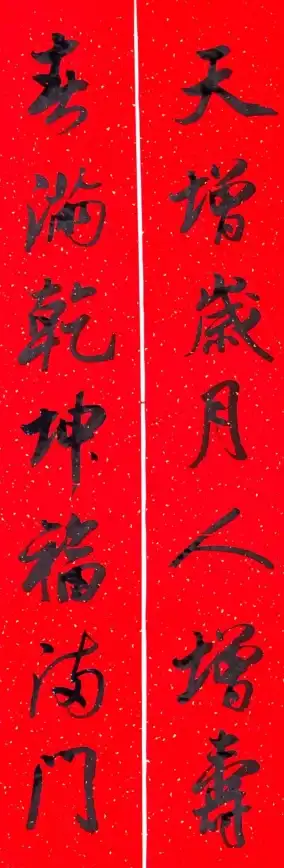 天增歲月人增壽
春滿乾坤福满门